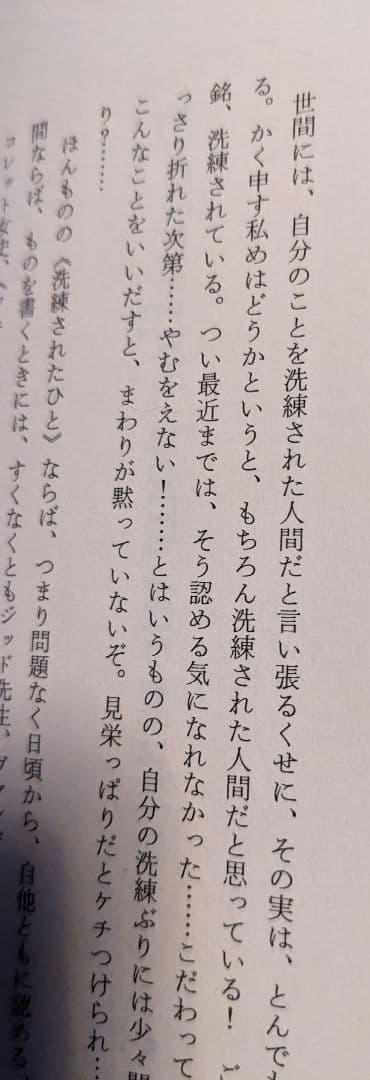 世間には、自分のことを洗練された人間だと言い張るくせに、その実は、とんでも
る。かく申す私めはどうかというと、もちろん洗練された人間だと思っている！　ご
銘、洗練されている。つい最近までは、そう認める気になれなかった……こだわって
っさり折れた次第……やむをえない！……とはいうものの、自分の洗練ぶりには少々
こんなことをいいだすと、まわりが黙っていないぞ。見栄っぱりだとケチつけられ…
り？……
ほんものの《洗練されたひと》ならば、つまり問題なく日頃から、自他ともに認める
間ならば、ものを書くときには、すくなくともジッド先生、